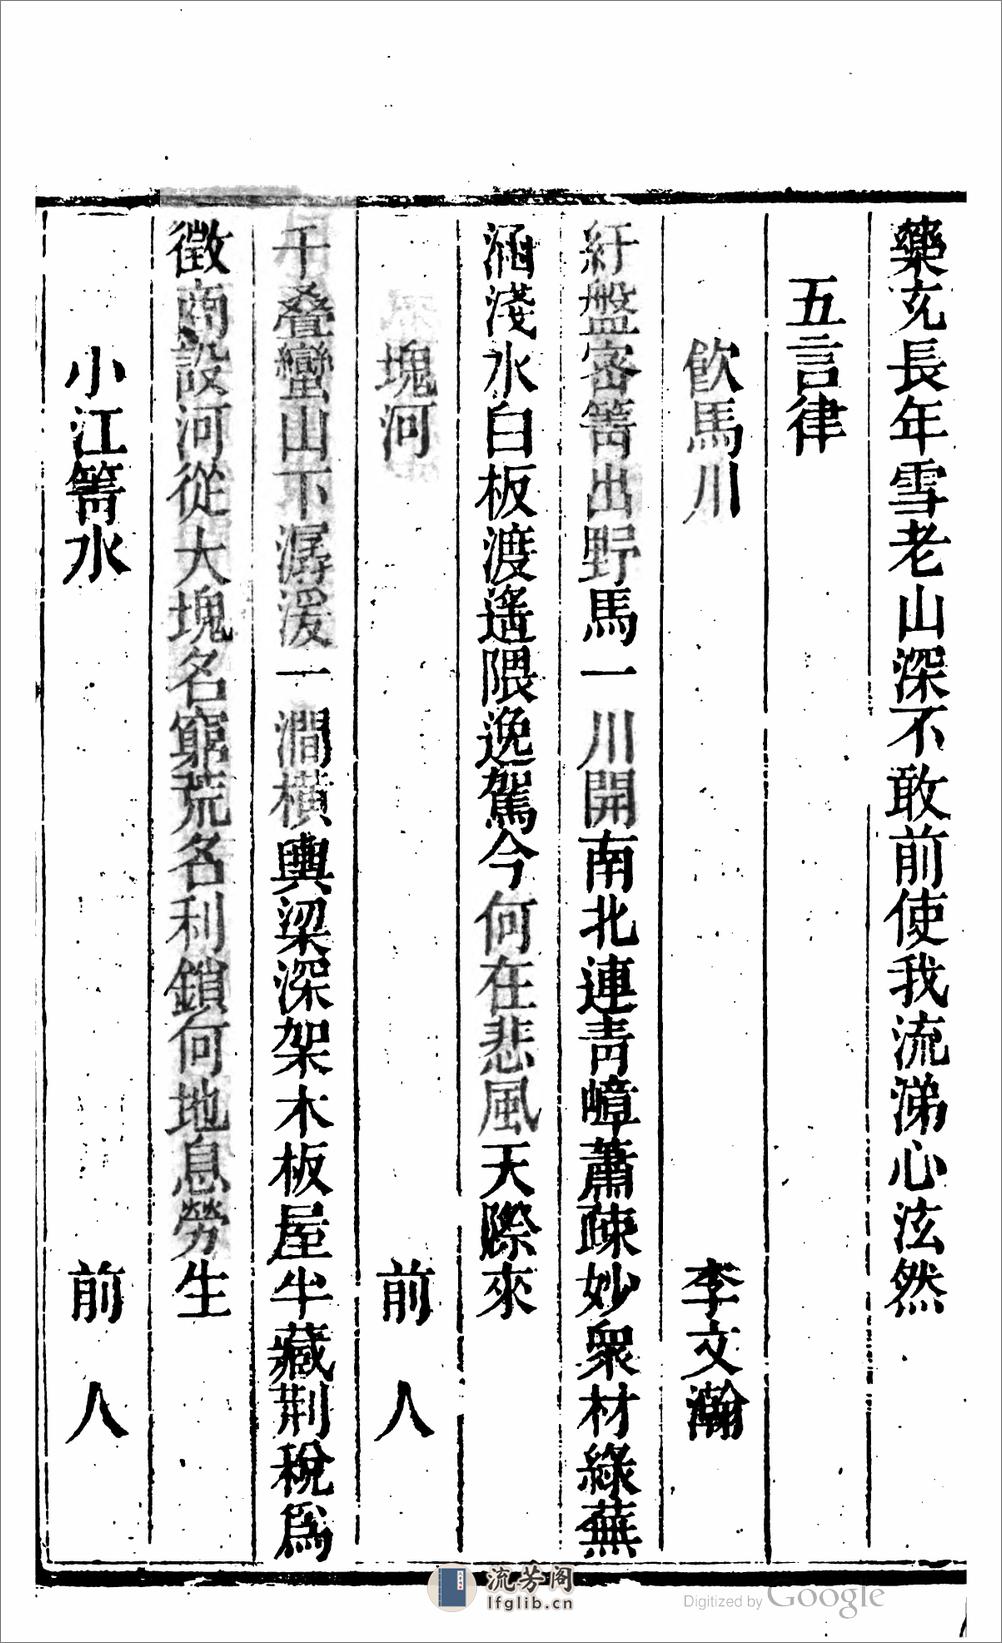 藥㐬長年雪老山深不敢前使我流涕心泫然
五言律
飲馬川 李文瀚
紆盤密箐出野馬一川開南北連青嶂蕭疎妙衆材綠蕪
涵淺水白板渡遙隈逸駕今何在悲風天際來
塊河 前人
千叠蠻山下潺湲一澗橫輿梁深架木板屋半藏荆稅爲
徵商設河從大塊名窮荒名利鎖何地息勞生
小江箐水 前人
流芳阁
lfglib.cn
Digitized by Google